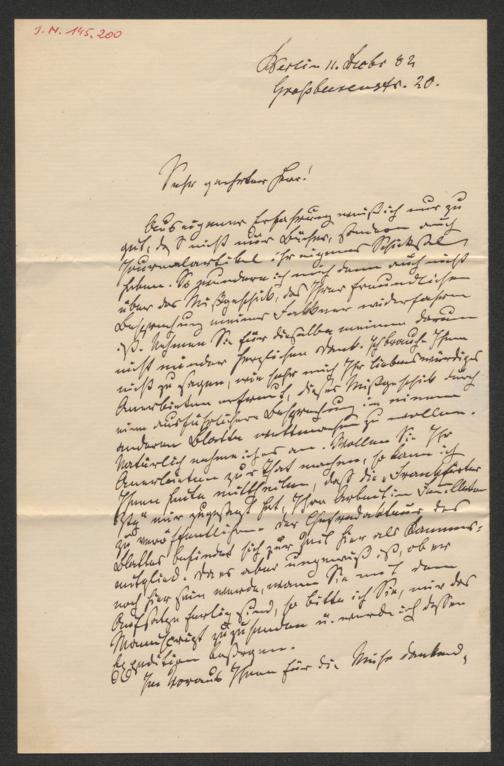 J. N. 145.200
Berlin 11. Decbr 82
Großbeerenstr. 20.
Sehr geehrter Herr!
Aus eigener Erfahrung weiß ich nur zu
gut, daß nicht nur Bücher, sondern auch
Journalartikel ihr eigenes Schicksal
haben. So wundere ich mich denn auch nicht
über das Mißgeschick, das Ihrer freundlichen
Besprechung meiner widerfahren
ist. Nehmen Sie für dieselbe meinen darum
nicht minder herzlichen Dank. Ich brauche Ihnen
nicht zu sagen, wie sehr mich Ihr liebenswürdiges
Anerbieten erfreut, dieses Mißgeschick durch
eine ausführlichere Besprechung in einem
anderen Blatte wettmachen zu wollen.
Natürlich nehme ich es an. Wollen Sie Ihr
Anerbieten zur That machen, so kann ich
Ihnen heute mittheilen, daß die „Frankfurter
Ztg" mir zugesagt hat, Ihre Arbeit im Feuilleton
zu veröffentlichen. Der Chefredakteur des
Blattes befindet sich zur Zeit hier als Kammer-
mitglied. Da es aber ungewiß ist, ob er
noch hier sein werde, wann Sie mit dem
Aufsatze fertig sind, so bitte ich Sie, mir das
Manuscript zuzusenden u. werde ich dessen
Expedition besorgen.
Im Voraus Ihnen für die Mühe dankend,